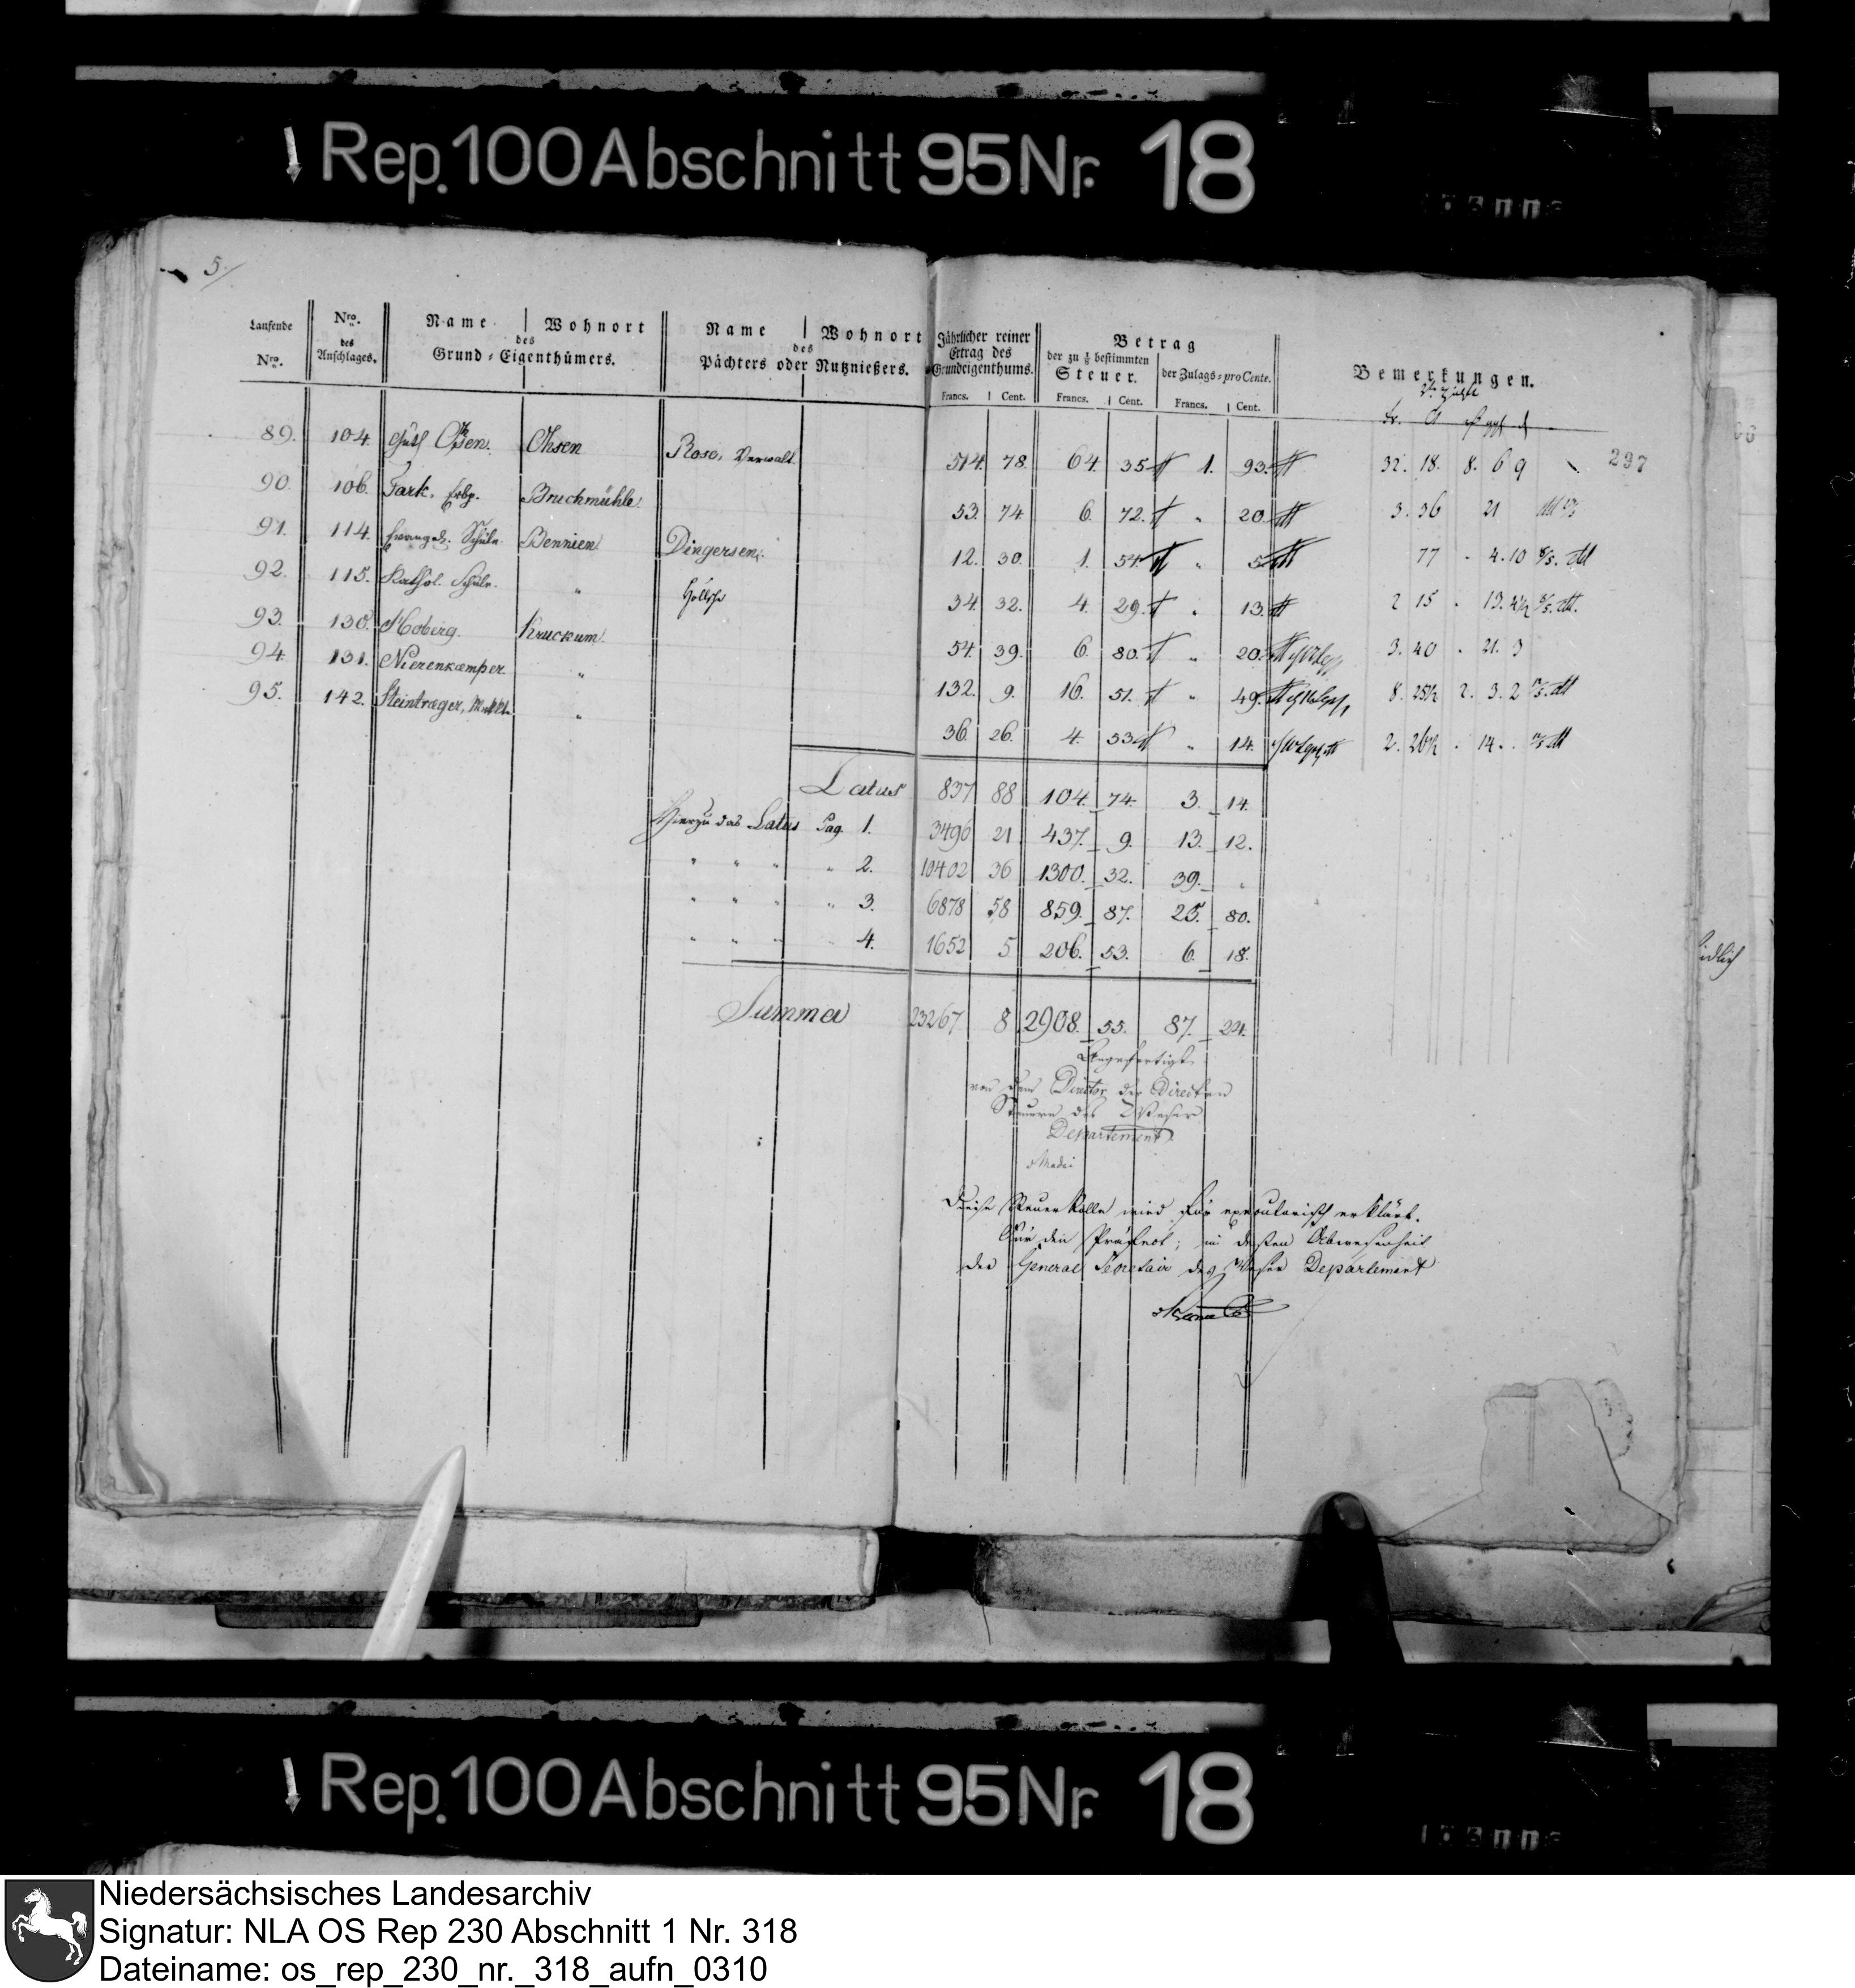 Rep. 100 Abschnitt 95 Nr. 18
5.
Laufende Nro. | Nro. des Anschlages. | Name | Wohnort des Grund-Eigenthümers. | Name | Wohnort des Pächters oder Nutznießers. | Jährlicher reiner Ertrag des Grundeigenthums. | Betrag der zu ⅛ bestimmten Steuer. | der Zulags-pro Cente. | Bemerkungen.
Francs. | Cent. | Francs. | Cent. | Francs. | Cent.
89. 104. Ohsen Rose, Verwalt. 514. 78. 64. 35. 1. 93. 32. 18. 8. 6 9 237
90. 106. Tark, Erbp. Bruchmühle 53. 74 6. 72. " 20. 3. 36 21
91. 114. Evangel. Schule Bennien Dingersen. 12. 30. 1. 54. " 5 77 . 4. 10
92. 115. Kathol. Schule. " 34. 32. 4. 29. " 13. 2 15 .
93. 130. Hoberg. Kruckum. 54. 39. 6. 80. " 20. 3. 40 . 21. 3
94. 131. Nierenkæmper. " 132. 9. 16. 51. " 49. 8. 25½ 2. 3. 2
95. 142. Steintræger, " 36. 26. 4. 53. " 14. 2. 26½ . 14.
Latus 837 88 104. 74. 3. 14.
Hierzu das Latus Pag. 1. 3496 21 437. 9. 13. 12.
" " " " 2. 10402 36 1300. 32. 39. "
" " " " 3. 6878 58 859. 87. 25. 80.
" " " " 4. 1652 5 206. 53. 6. 18.
Summa 23267 8 2908. 55. 87. 24.
Angefertigt
von dem Director der Directen
Steuern des Weser
Departement
Diese Steuer Rolle wird für executorisch erklärt.
Für den Präfect; in deßen Abwesenheit
der General Secretair des Weser Departement
idlich
Rep. 100 Abschnitt 95 Nr. 18
Niedersächsisches Landesarchiv
Signatur: NLA OS Rep 230 Abschnitt 1 Nr. 318
Dateiname: os_rep_230_nr._318_aufn_0310